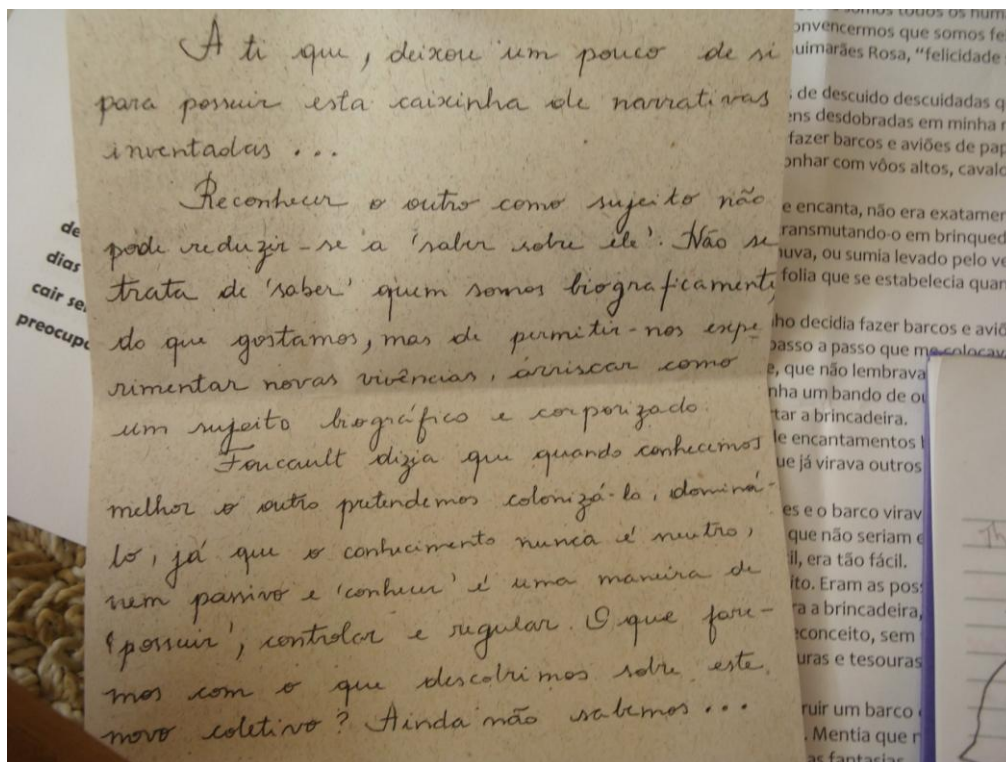 A ti que, deixou um pouco de si
para possuir esta caixinha de narrativas
inventadas ...
Reconhecer o outro como sujeito não
pode reduzir-se a 'saber sobre ele'. Não se
trata de 'saber' quem somos biograficamente,
do que gostamos, mas de permitir-nos expe
rimentar novas vivências, arriscar como
um sujeito biográfico e corporizado.
Foucault dizia que quando conhecemos
melhor o outro pretendemos colonizá-lo, dominá-
lo, já que o conhecimento nunca é neutro,
nem passivo e 'conhecer' é uma maneira de
'possuir', controlar e regular. O que fare-
mos com o que descobrimos sobre este
novo coletivo? Ainda não sabemos ...
de
dias
cair se
preocup
somos todos os hum
onvencermos que somos fe
uimarães Rosa, "felicidade
de descuido descuidadas q
ens desdobradas em minha
fazer barcos e aviões de pap
onhar com vôos altos, cavalo
e encanta, não era exatamen
ransmutando-o em brinqued
huva, ou sumia levado pelo ve
folia que se estabelecia quan
ho decidia fazer barcos e aviõ
passo a passo que me colocav
e, que não lembrava
nha um bando de ou
tar a brincadeira.
e encantamentos
ue já virava outros
es e o barco virav
que não seriam e
il, era tão fácil.
ito. Eram as pos
ra a brincadeira,
econceito, sem
uras e tesouras
ruir um barco
. Mentia que
as fantasias
Th